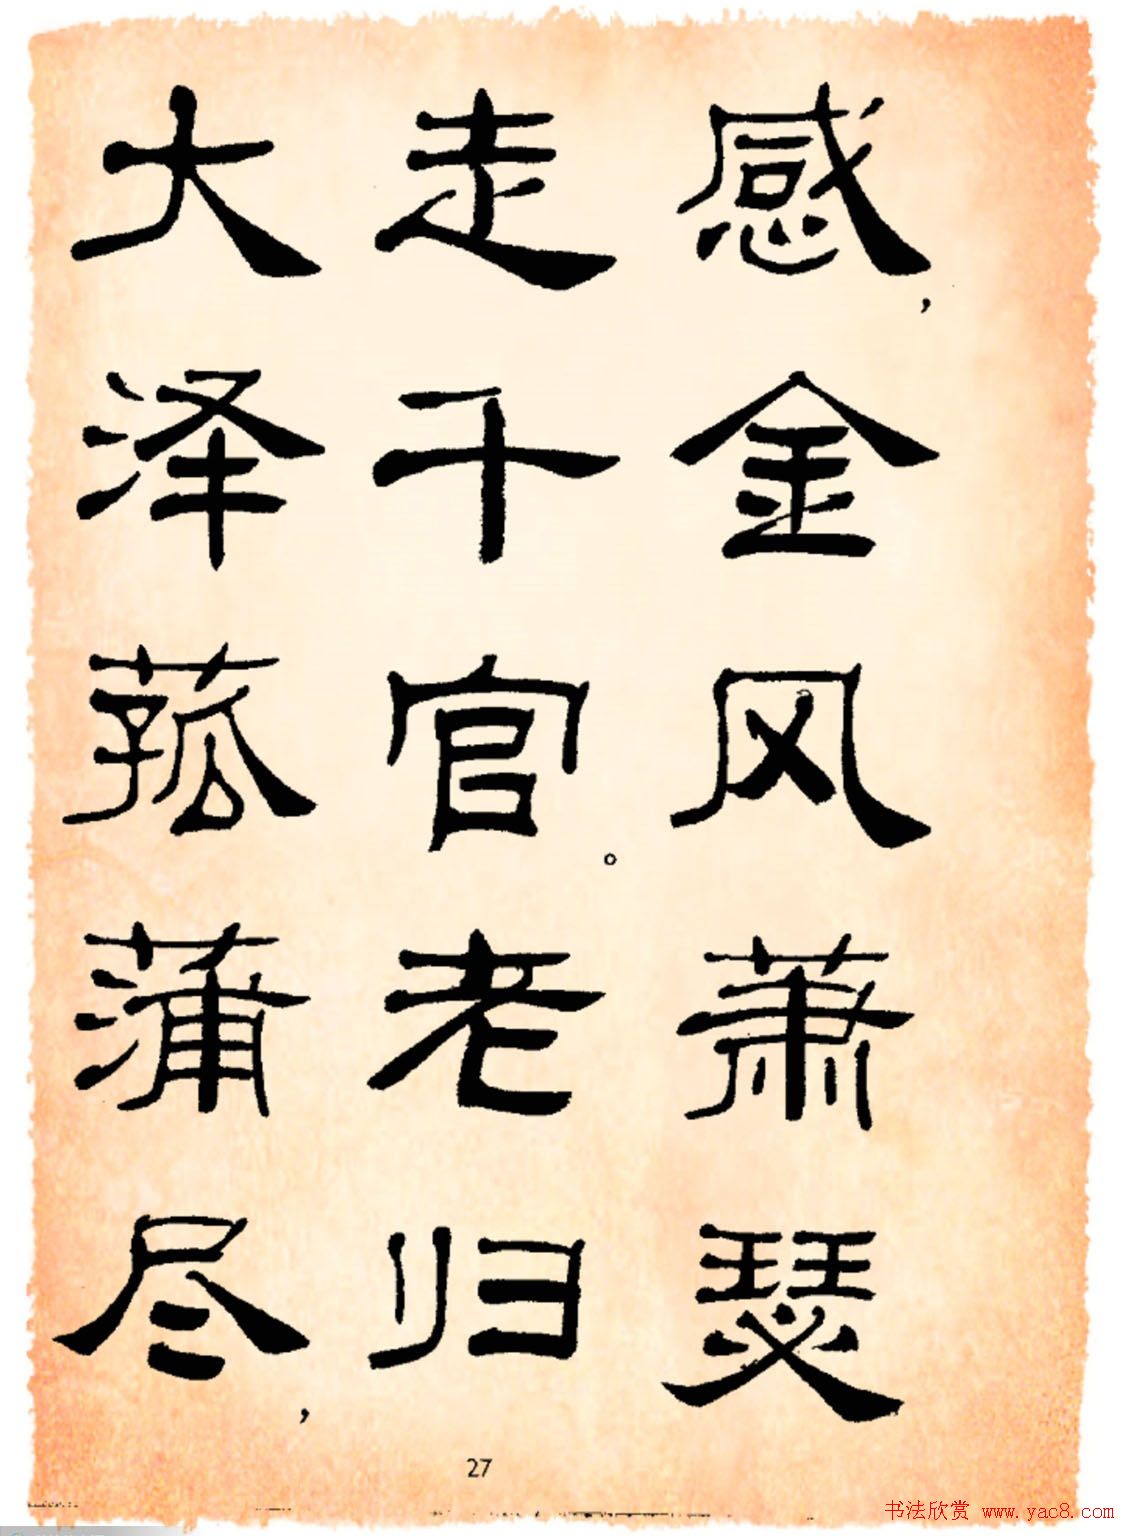 感，金风萧瑟
走千官。老归
大泽菰蒲尽，
27
书法欣赏 www.yac8.com